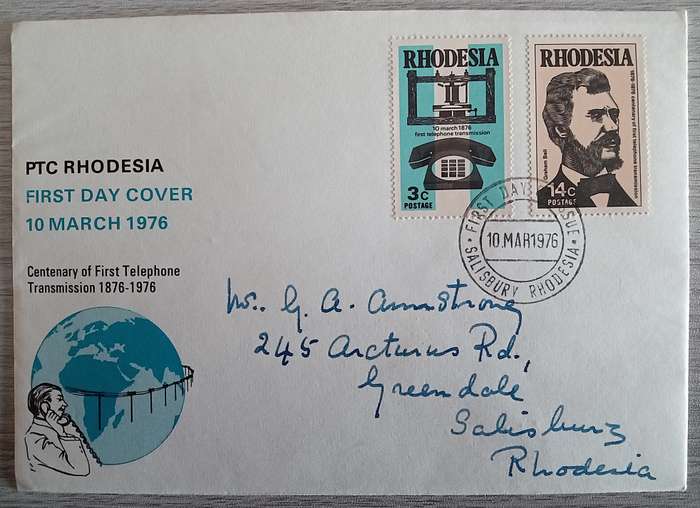 PTC RHODESIA
FIRST DAY COVER
10 MARCH 1976
Centenary of First Telephone
Transmission 1876-1976
RHODESIA
10 march 1876
first telephone transmission
3c
POSTAGE
RHODESIA
1876-1976 centenary of first telephone transmission
Graham Bell
14c
POSTAGE
FIRST DAY ISSUE
10.MAR1976
SALISBURY RHODESIA
G. A. Armstrong
245 Arcturus Rd.,
Greendale
Salisbury
Rhodesia